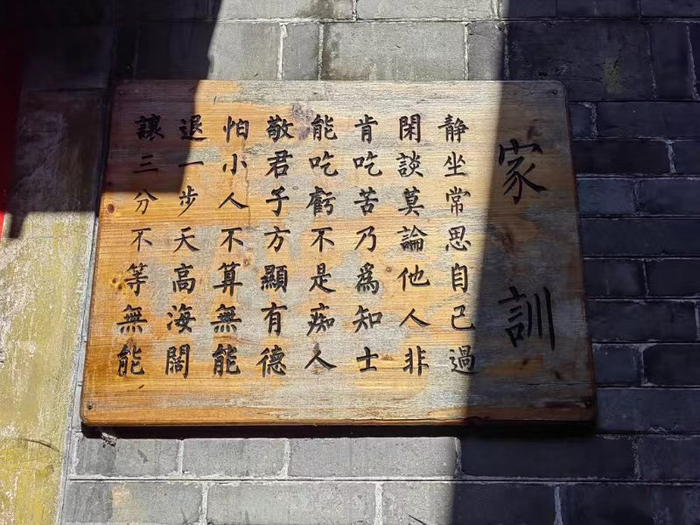 家訓
靜坐常思自己過
閑談莫論他人非
肯吃苦乃為知士
能吃虧不是痴人
敬君子方顯有德
怕小人不算無能
退一步天高海闊
讓三分不等無能